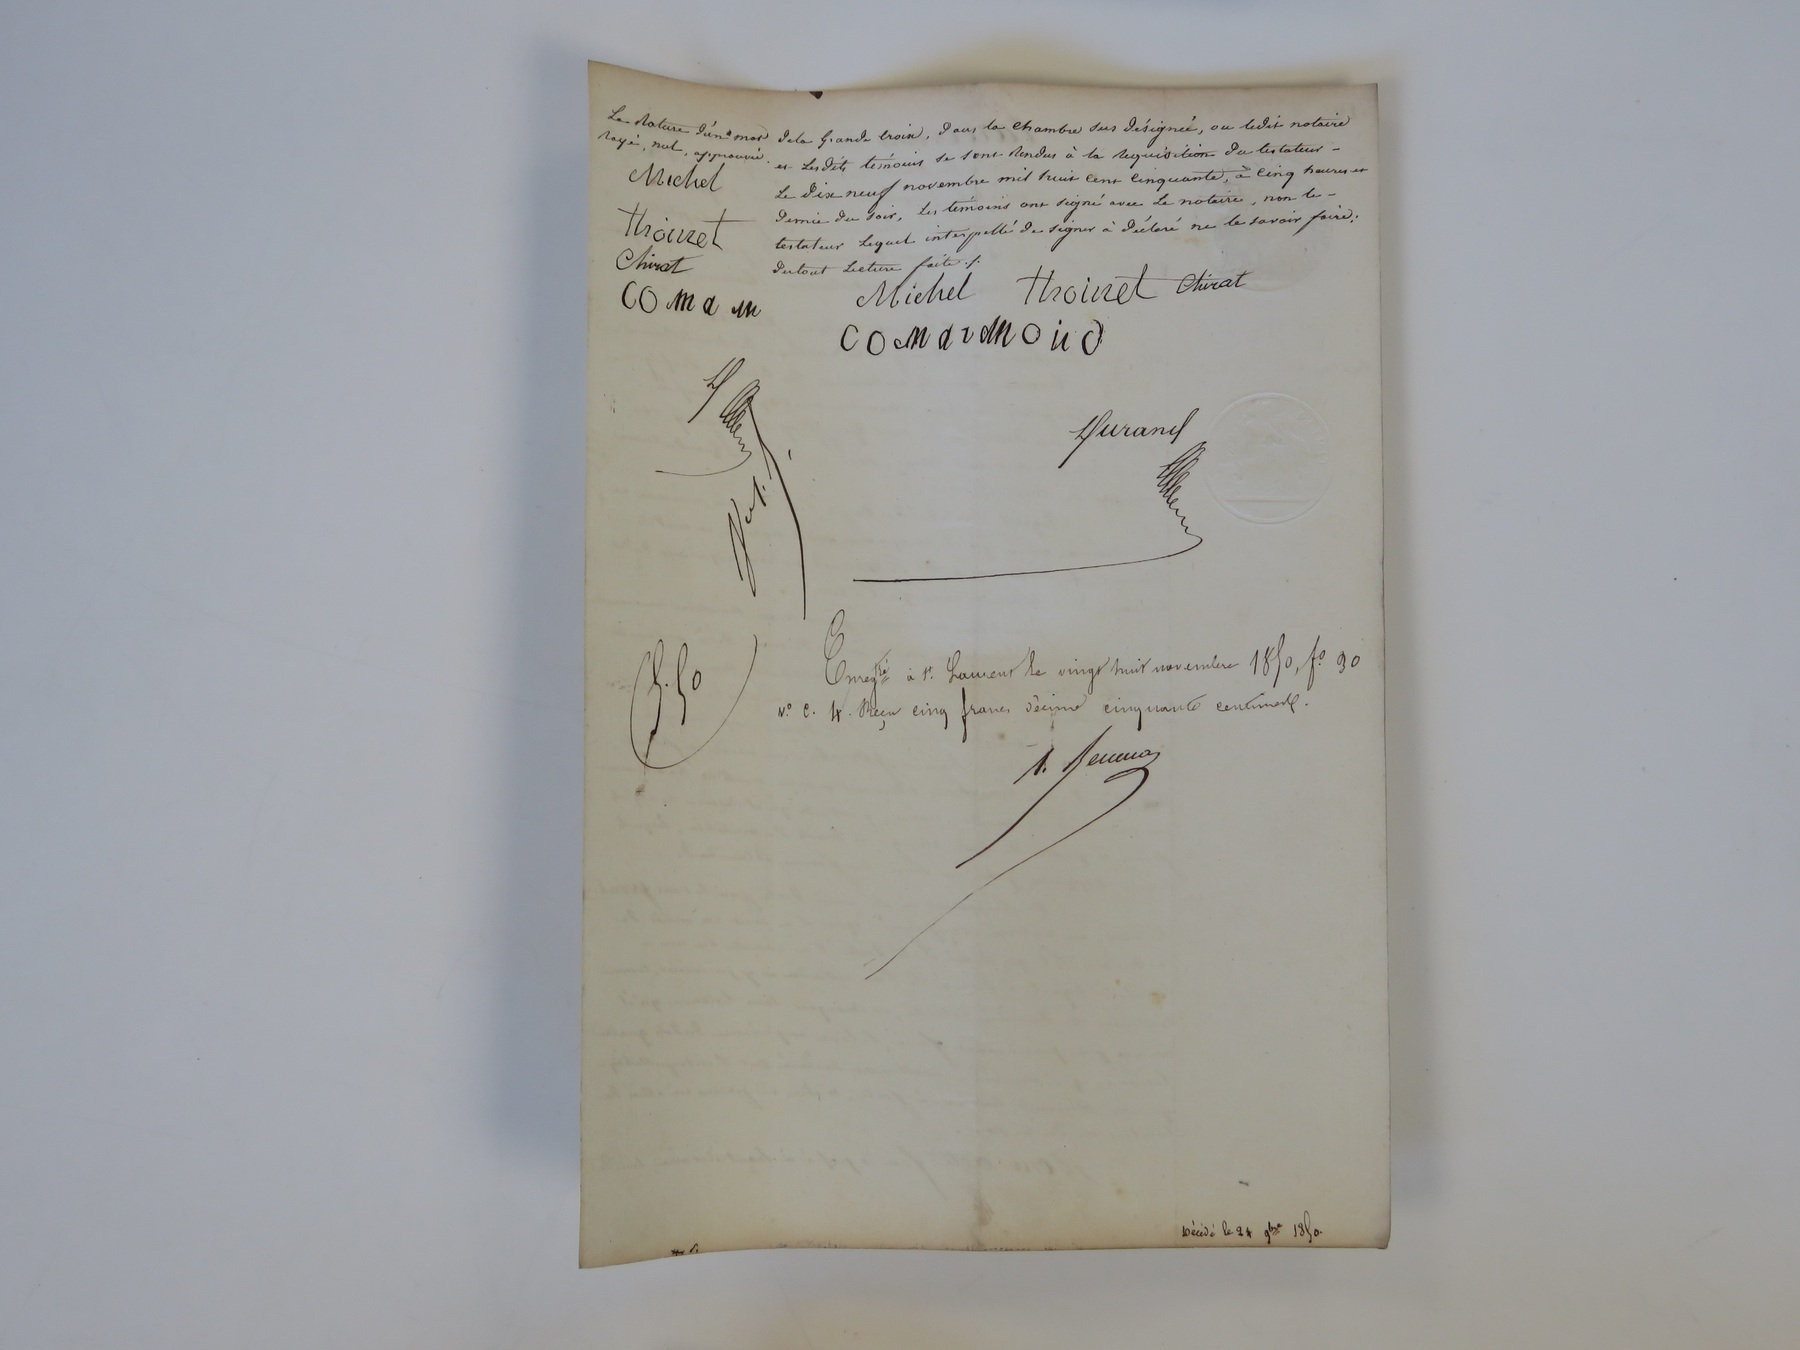 La rature d'un mot
rayé, nul, approuvée.
Michel
Thoinet
Chirat
Comam
de la Grande Croix, dans la chambre sus désignée, ou ledit notaire
et lesdits témoins se sont rendus à la requisition du testateur -
Le dix neuf novembre mil huit cent cinquante, à cinq heures et
demie du soir, les témoins ont signé avec le notaire, non le -
testateur lequel interpellé de signer à déclaré ne le savoir faire;
du tout lecture faite ./.
Michel Thoinet Chirat
Comarmond
Durand
5.50
Enregré à St. Laurent le vingt huit novembre 1850, fo 30
No c. 4. Reçu cinq francs décime cinquante centimes.
Décédé le 24 9bre 1850.